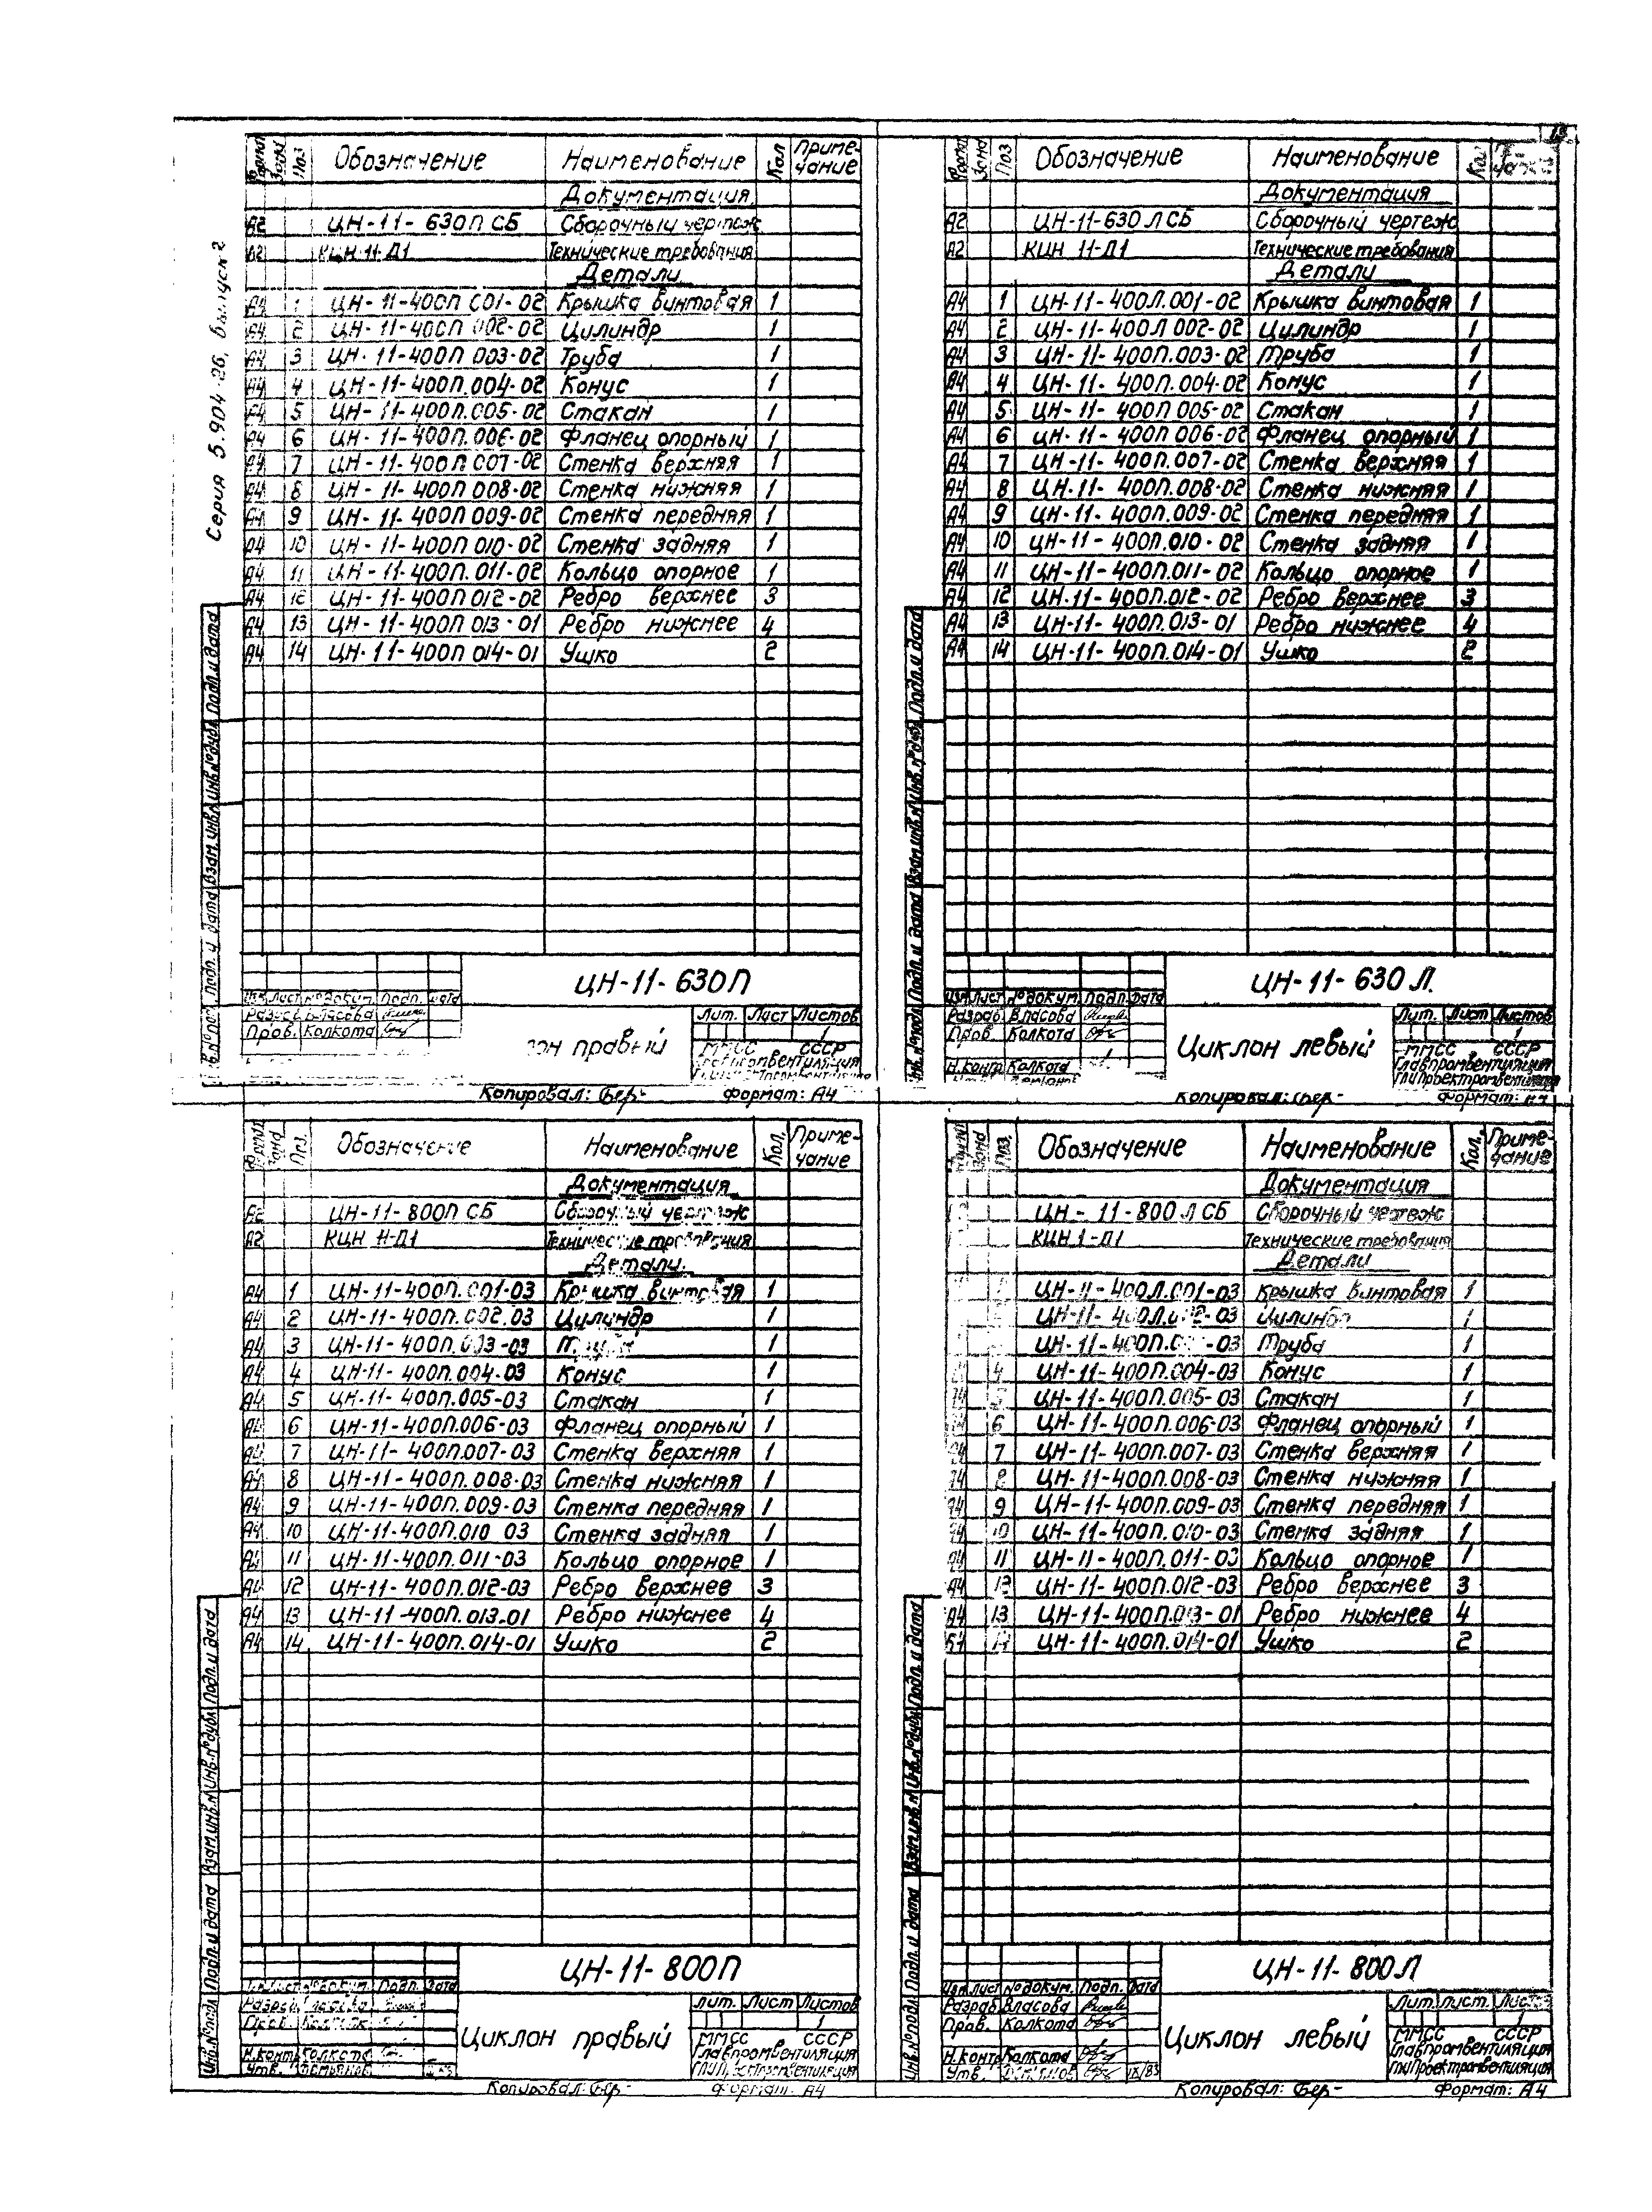 13
Серия 5.904-26, выпуск 2
Формат Зона Поз Обозначение Наименование Кол Приме-чание
Документация
А2 ЦН-11-630П СБ Сборочный чертеж
А2 КЦН-11-Д1 Технические требования
Детали
А4 1 ЦН-11-400П 001-02 Крышка винтовая 1
А4 2 ЦН-11-400П 002-02 Цилиндр 1
А4 3 ЦН-11-400П 003-02 Труба 1
А4 4 ЦН-11-400П.004-02 Конус 1
А4 5 ЦН-11-400П.005-02 Стакан 1
А4 6 ЦН-11-400П.006-02 Фланец опорный 1
А4 7 ЦН-11-400П 007-02 Стенка верхняя 1
А4 8 ЦН-11-400П 008-02 Стенка нижняя 1
А4 9 ЦН-11-400П 009-02 Стенка передняя 1
А4 10 ЦН-11-400П 010-02 Стенка задняя 1
А4 11 ЦН-11-400П.011-02 Кольцо опорное 1
А4 12 ЦН-11-400П 012-02 Ребро верхнее 3
А4 13 ЦН-11-400П 013-01 Ребро нижнее 4
А4 14 ЦН-11-400П 014-01 Ушко 2
Подп. и дата Взам. инв. № Инв. № дубл Подп. и дата
ЦН-11-630П
Изм Лист № докум. Подп. Дата
Разраб Власова
Пров. Колкота
правый
Лит. Лист Листов
1
ММСС СССР
Копировал: Бер-
Формат: А4
Формат Зона Поз Обозначение Наименование Кол
Документация
А2 ЦН-11-630 Л СБ Сборочный чертеж
А2 КЦН 11-Д1 Технические требования
Детали
А4 1 ЦН-11-400Л.001-02 Крышка винтовая 1
А4 2 ЦН-11-400Л 002-02 Цилиндр 1
А4 3 ЦН-11-400П.003-02 Труба 1
А4 4 ЦН-11-400П.004-02 Конус 1
А4 5 ЦН-11-400П 005-02 Стакан 1
А4 6 ЦН-11-400П 006-02 Фланец опорный 1
А4 7 ЦН-11-400П.007-02 Стенка верхняя 1
А4 8 ЦН-11-400П.008-02 Стенка нижняя 1
А4 9 ЦН-11-400П.009-02 Стенка передняя 1
А4 10 ЦН-11-400П.010-02 Стенка задняя 1
А4 11 ЦН-11-400П.011-02 Кольцо опорное 1
А4 12 ЦН-11-400П.012-02 Ребро верхнее 3
А4 13 ЦН-11-400П.013-01 Ребро нижнее 4
А4 14 ЦН-11-400П.014-01 Ушко 2
Инв. № подл Подп. и дата Взам инв. № Инв. № дубл Подп. и дата
ЦН-11-630 Л.
Изм Лист № докум. Подп. Дата
Разраб. Власова
Пров. Колкота
Н.контр Колкота
Циклон левый
Лит. Лист Листов
1
ММСС СССР
Главпромвентиляция
ГПИ Проектпромвентиляция
Копировал: Бер-
Формат: А4
Формат Зона Поз. Обозначение Наименование Кол. Приме-чание
Документация
А2 ЦН-11-800П СБ Сборочный чертеж
А2 КЦН 11-Д1 Технические требования
Детали.
А4 1 ЦН-11-400П.001-03 Крышка винтовая 1
А4 2 ЦН-11-400П.002.03 Цилиндр 1
А4 3 ЦН-11-400П.003-03 1
А4 4 ЦН-11-400П.004-03 Конус 1
А4 5 ЦН-11-400П.005-03 Стакан 1
А4 6 ЦН-11-400П.006-03 Фланец опорный 1
А4 7 ЦН-11-400П.007-03 Стенка верхняя 1
А4 8 ЦН-11-400П.008-03 Стенка нижняя 1
А4 9 ЦН-11-400П.009-03 Стенка передняя 1
А4 10 ЦН-11-400П.010 03 Стенка задняя 1
А4 11 ЦН-11-400П.011-03 Кольцо опорное 1
А4 12 ЦН-11-400П.012-03 Ребро верхнее 3
А4 13 ЦН-11-400П.013.01 Ребро нижнее 4
А4 14 ЦН-11-400П.014-01 Ушко 2
Инв. № подл Подп. и дата Взам. инв. № Инв. № дубл Подп. и дата
ЦН-11-800П
Лист № докум. Подп. Дата
Разраб
Пров.
Н.контр Колкота
Утв.
Циклон правый
Лит. Лист Листов
1
ММСС СССР
Главпромвентиляция
Копировал: Бер-
Формат: А4
Формат Зона Поз. Обозначение Наименование Кол. Приме-чание
Документация
ЦН-11-800 Л СБ Сборочный чертеж
Технические требования
Детали
ЦН-11-400Л.001-03 Крышка винтовая 1
Цилиндр 1
Труба 1
4 ЦН-11-400П.004-03 Конус 1
ЦН-11-400П.005-03 Стакан 1
6 ЦН-11-400П.006-03 Фланец опорный 1
А4 7 ЦН-11-400П.007-03 Стенка верхняя 1
А4 8 ЦН-11-400П.008-03 Стенка нижняя 1
А4 9 ЦН-11-400П.009-03 Стенка передняя 1
А4 10 ЦН-11-400П.010-03 Стенка задняя 1
А4 11 ЦН-11-400П.011-03 Кольцо опорное 1
А4 12 ЦН-11-400П.012-03 Ребро верхнее 3
А4 13 ЦН-11-400П.013-01 Ребро нижнее 4
ЦН-11-400П.014-01 Ушко 2
Инв. № подл Подп. и дата Взам инв. № Инв. № дубл Подп. и дата
ЦН-11-800Л
Изм Лист № докум. Подп. Дата
Разраб Власова
Пров. Колкота
Н.контр Колкота
Утв. IX/83
Циклон левый
Лит. Лист. Листов
1
ММСС СССР
Главпромвентиляция
ГПИ Проектпромвентиляция
Копировал: Бер-
Формат: А4